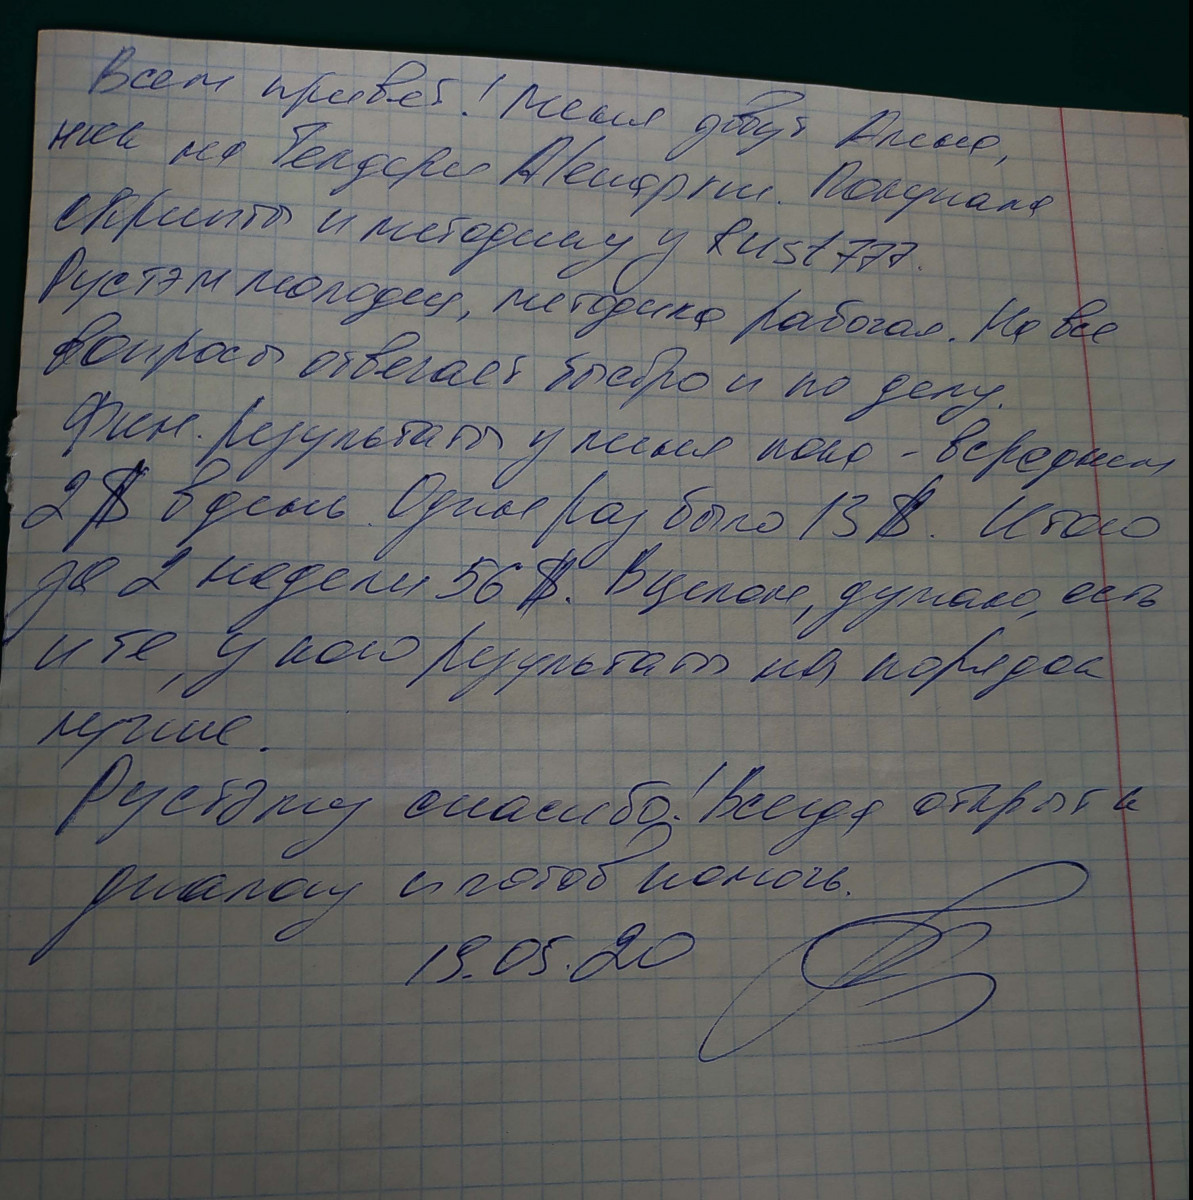 Всем привет! Меня зовут Алена,
ник на Тендере Alenapkin. Покупала
скрипты и методику у Rust777.
Рустэм молодец, методика рабочая. На все
вопросы отвечает быстро и по делу.
Фин. результаты у меня пока - в среднем
2$ в день. Один раз было 13$. Итого
за 2 недели 56$. В целом, думаю, есть
и те, у кого результаты на порядок
лучше.
Рустэму спасибо! Всегда открыт к
диалогу и готов помочь.
19.05.20